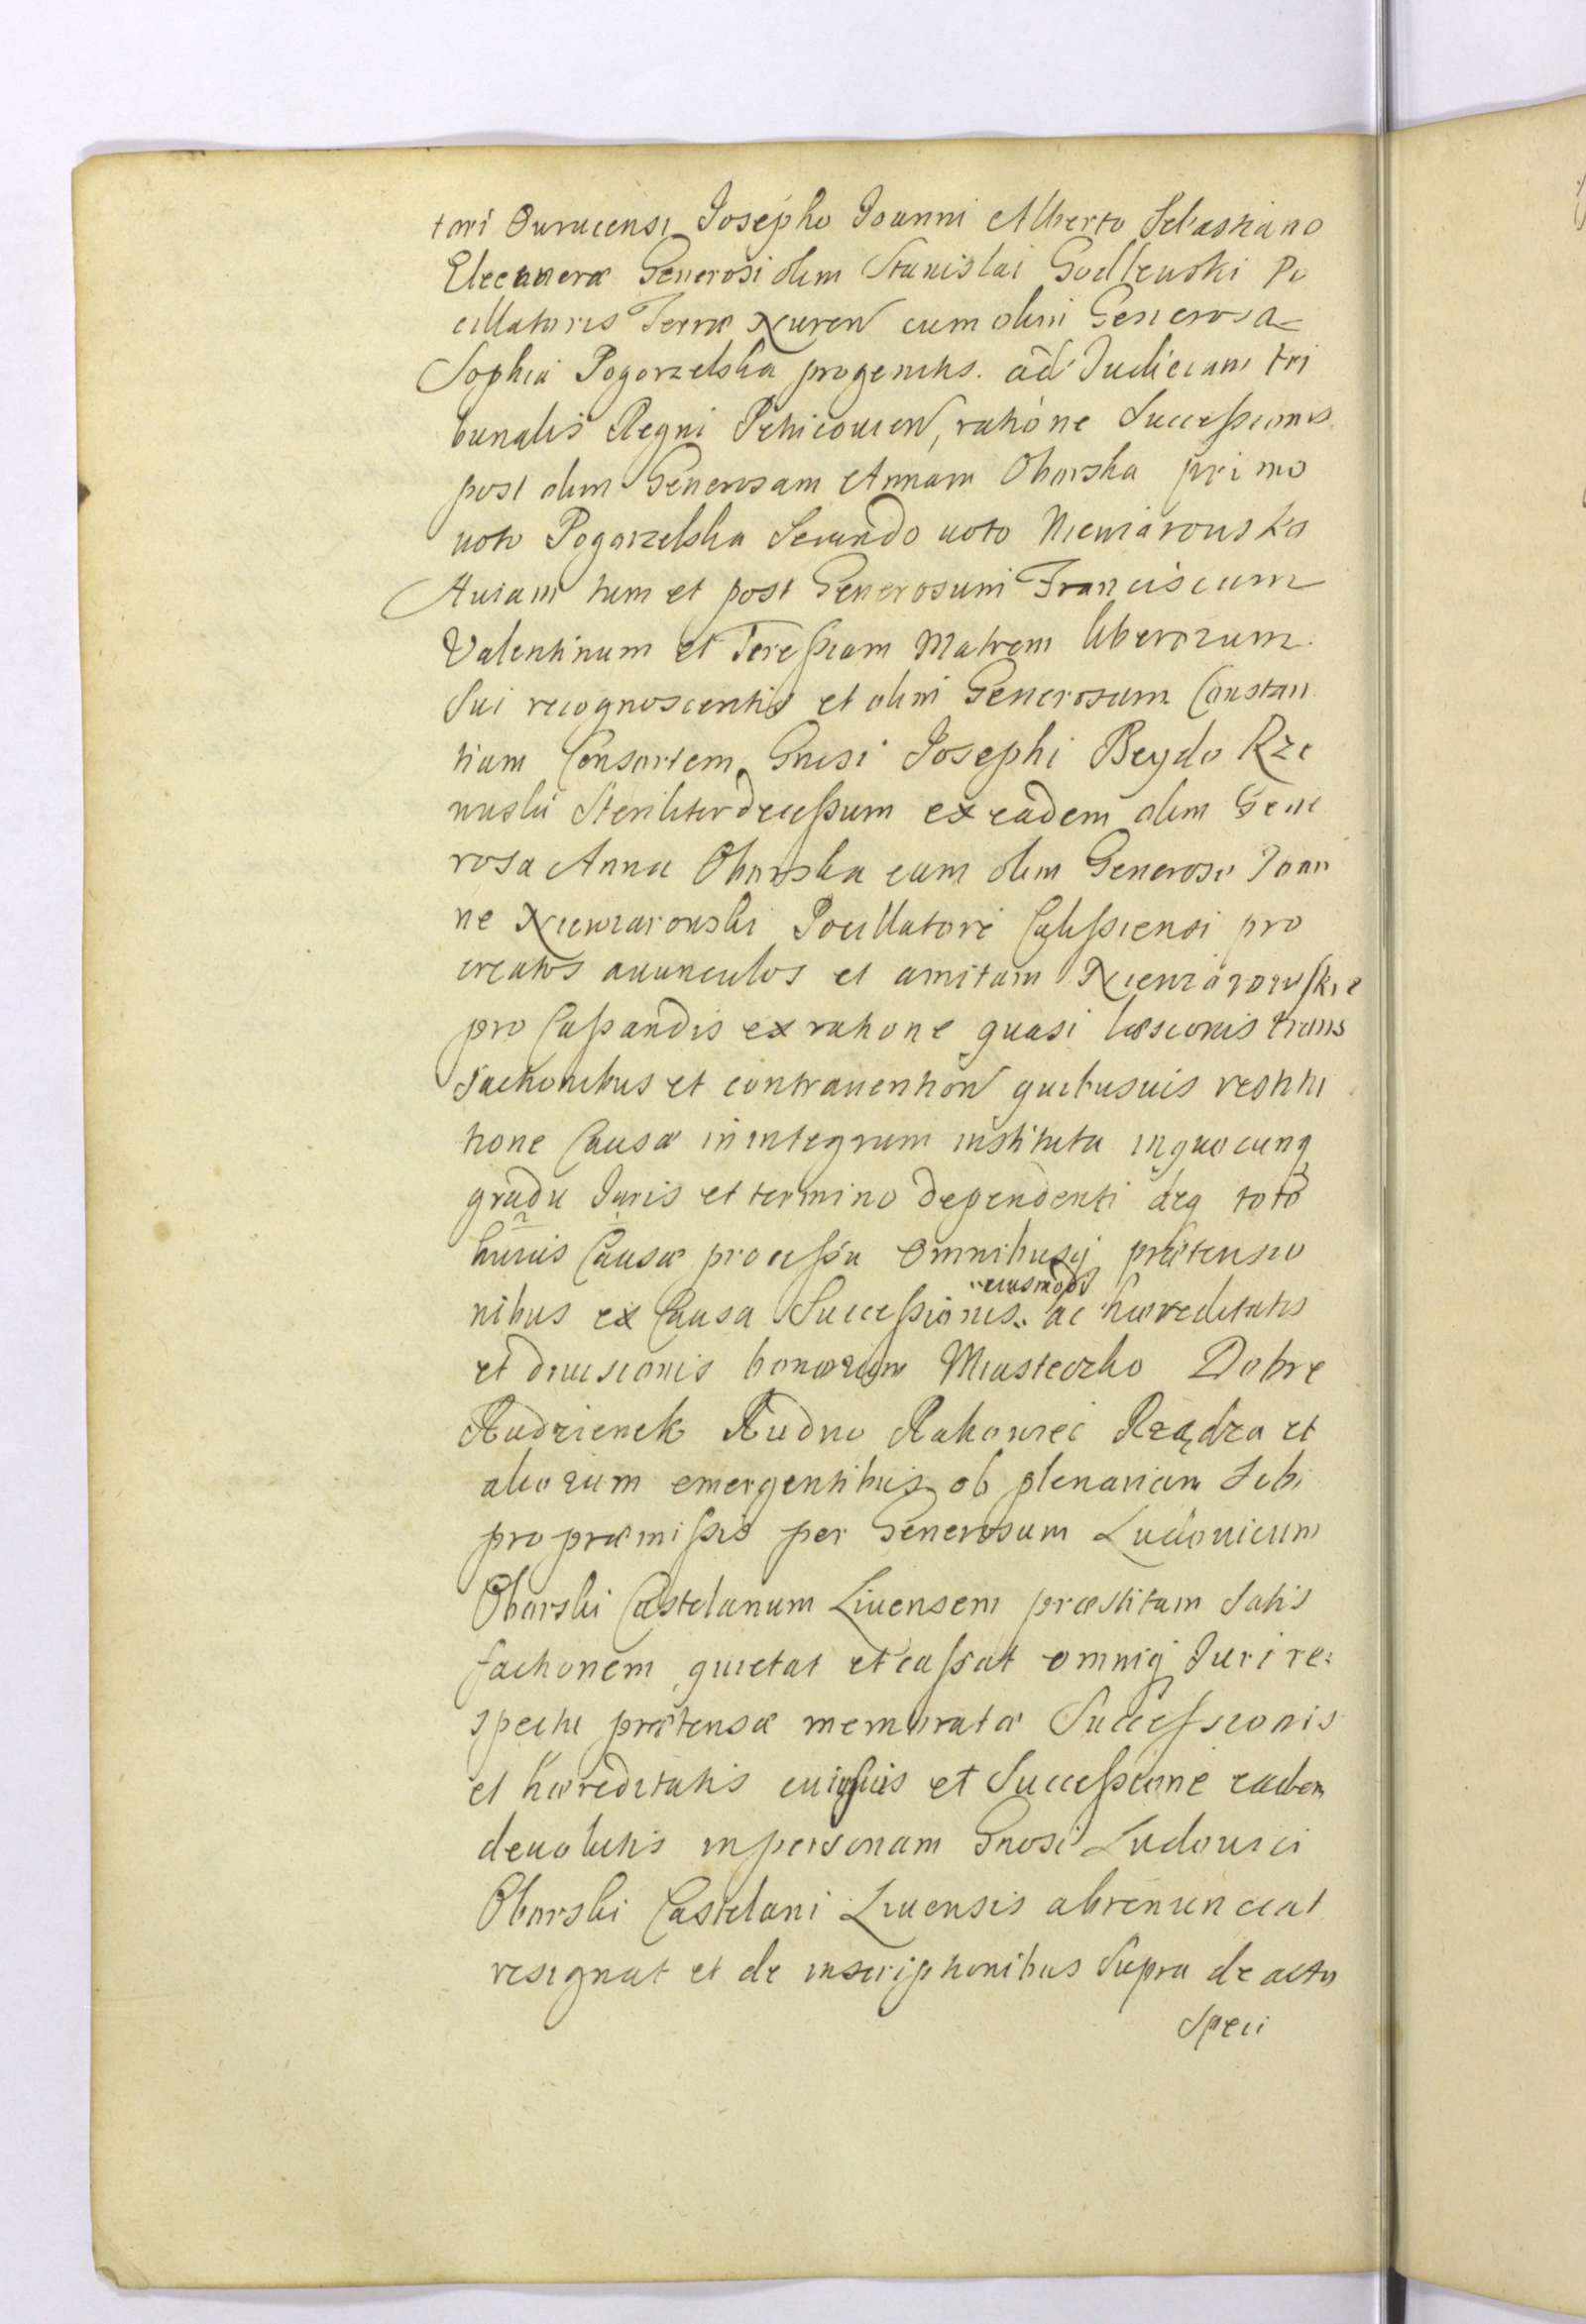 tori Ovrucensi Josepho Joanni Alberto Sebastiano
Eleonoræ Generosi olim Stanislai Godlewski Po
cillatoris Terræ Nuren cum olim Generosa
Sophia Pogorzelska progenitis. ad Judicium tri
bunalis Regni Petricovien, ratione Successionis
post olim Generosam Annam Oborska primo
voto Pogorzelska Secundo voto Niemiarowska
Aviam tum et post Generosum Franciscum
Valentinum et Teressiam Matrem liberorum
Sui recognoscentis et olim Generosam Constan
tiam Consortem Gnosi Josephi Beydo Rze
wuski Steriliter decessum ex eadem olim Gene
rosa Anna Oborska cum olim Generoso Joan
ne Niemiarowski Pocillatore Calissiensi pro
creatos avunculos et amitam Niemiarowskie
pro Cassandis ex ratione quasi læsionis trans
sactionibus et contravention quibusvis restitu
tione Causæ in integrum instituta in quocunq
gradu Juris et termino dependenti deq toto
huius Causæ processu omnibusq prætensio
nibus ex Causa Successionis eiusmodi ac hæreditatis
et divisionis bonorum Miasteczko Dobre
Rudzienek Rudno Rakowiec Rządza et
aliorum emergentibus ob plenariam Sibi
pro præmissis per Generosum Ludovicum
Oborski Castelanum Livensem præstitam Satis
factionem quietat et cassat omniq Juri re:
spectu prætensæ memoratæ Successionis
et hæreditatis cuiusvis et Successione eadem
devolutis in personam Gnosi Ludovici
Oborski Castelani Livensis abrenunciat
resignat et de inscriptionibus Supra de actu
Speci